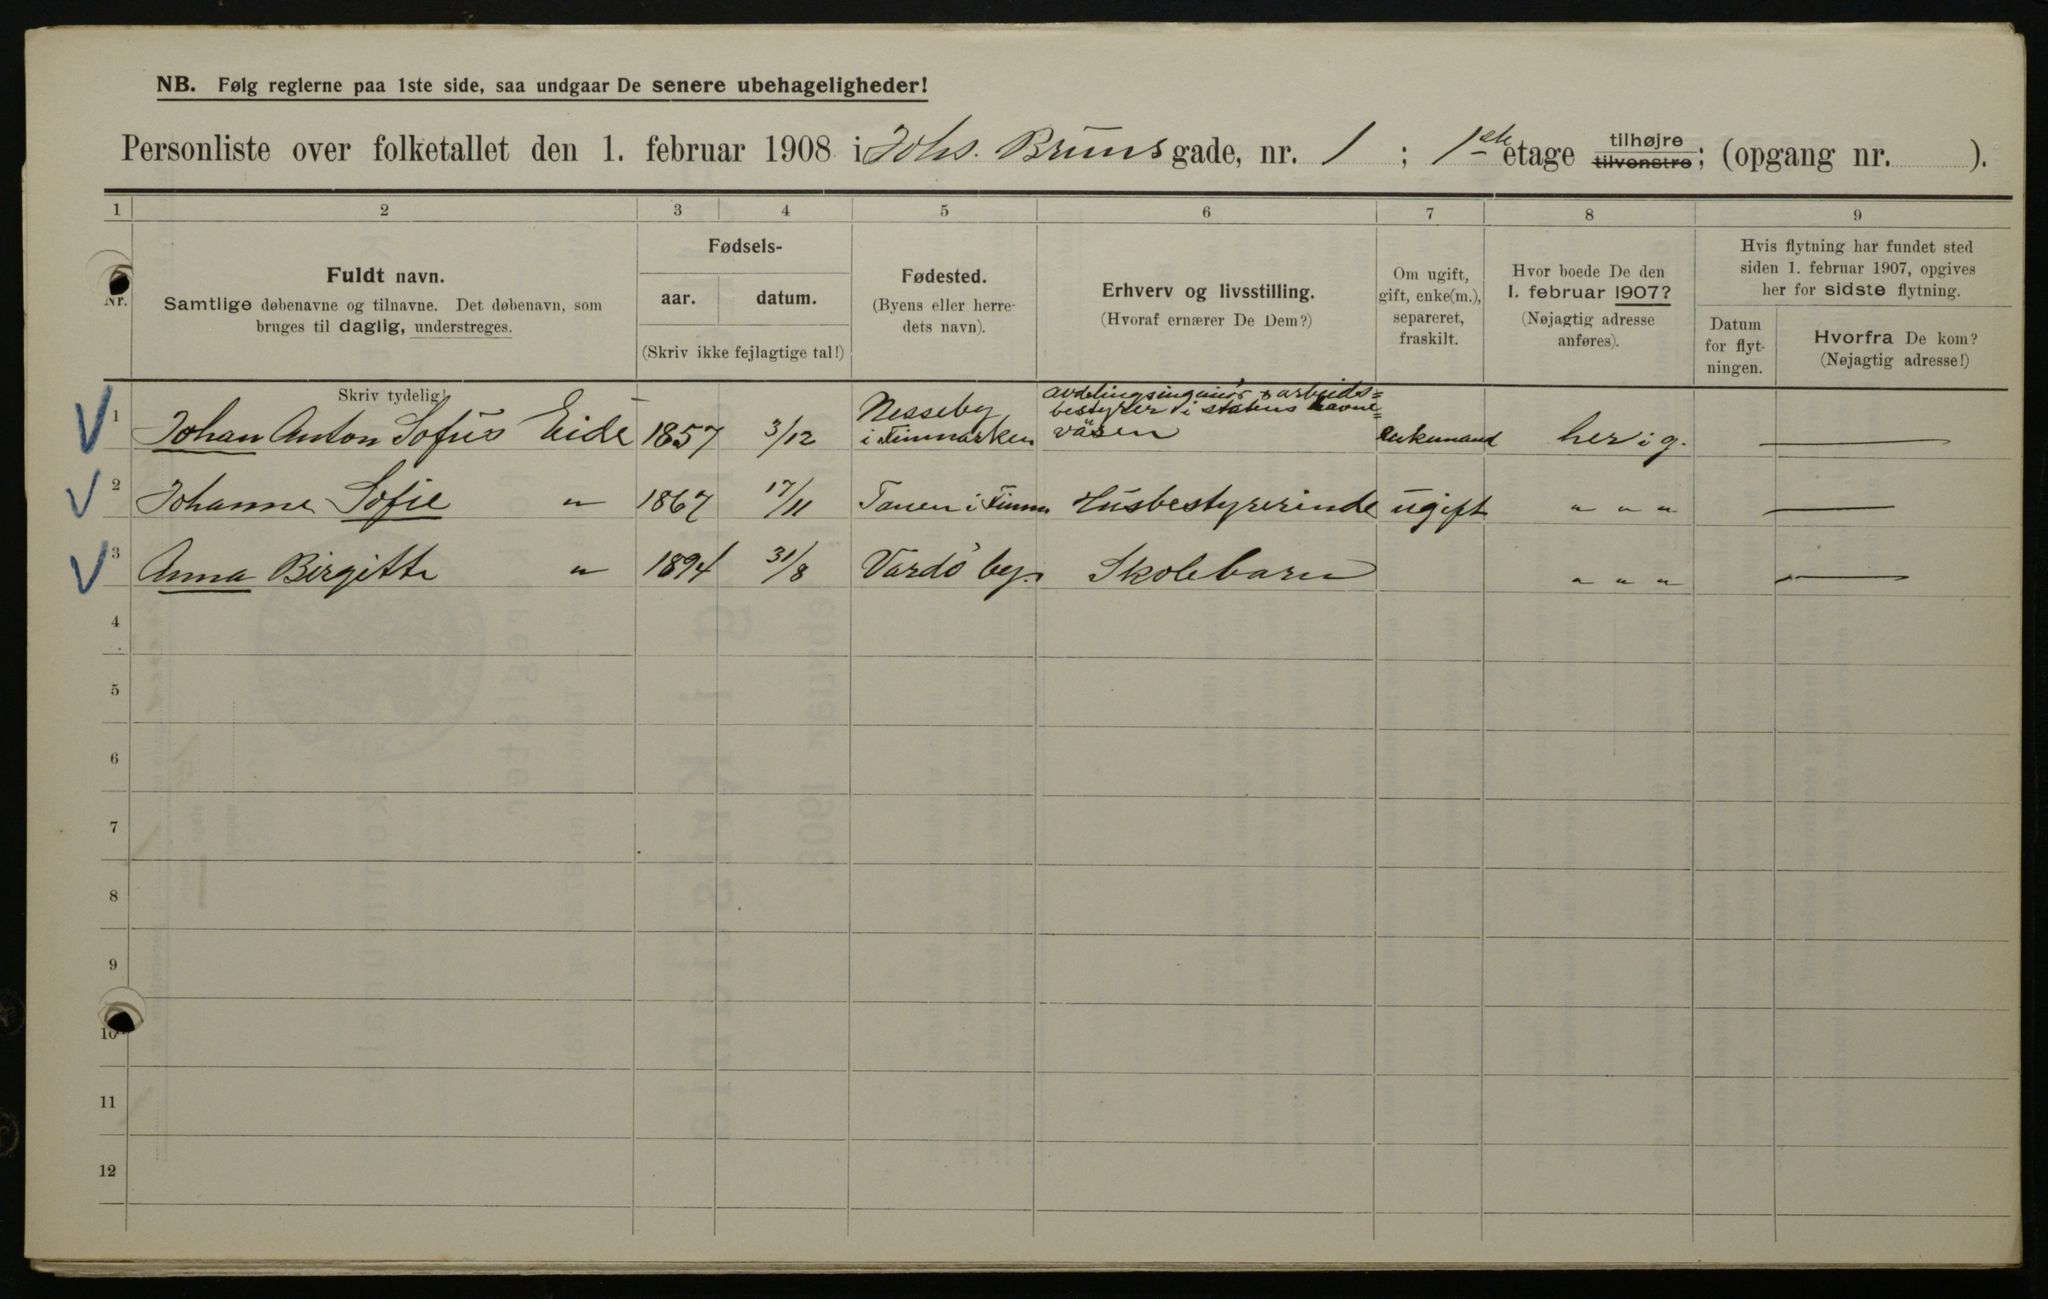 NB. Følg reglerne paa 1ste side, saa undgaar De senere ubehageligheder!
Personliste over folketallet den 1. februar 1908 i Johs. Bruns gade, nr. 1 ; 1ste etage tilhøjre tilvenstre; (opgang nr. ).
1 2 3 4 5 6 7 8 9
Nr.
Fuldt navn.
Samtlige døbenavne og tilnavne. Det døbenavn, som
bruges til daglig, understreges.
Fødsels-
aar. datum.
(Skriv ikke fejlagtige tal!)
Fødested.
(Byens eller herre-
dets navn).
Erhverv og livsstilling.
(Hvoraf ernærer De Dem?)
Om ugift,
gift, enke(m.),
separeret,
fraskilt.
Hvor boede De den
1. februar 1907?
(Nøjagtig adresse
anføres).
Hvis flytning har fundet sted
siden 1. februar 1907, opgives
her for sidste flytning.
Datum
for flyt-
ningen.
Hvorfra De kom?
(Nøjagtig adresse!)
Skriv tydelig!
1 Johan Anton Sofus Eide 1857 3/12 Nesseby i Finmarken avdelingsingeniør & arbeids= bestyrer i statens havne= väsen enkemand her i g. —
2 Johanne Sofie " 1867 17/11 Tanen i Finm Husbestyrerinde ugift " " " —
3 Anna Birgitte " 1894 31/8 Vardö by. Skolebarn " " " —
4
5
6
7
8
9
10
11
12